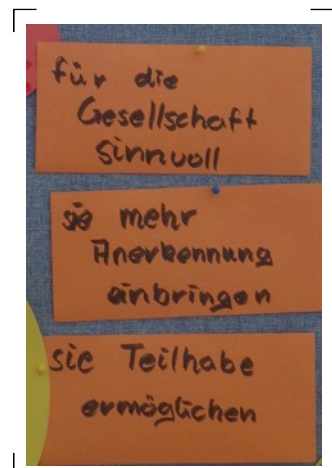 für die
Gesellschaft
sinnvoll
sie mehr
Anerkennung
einbringen
sie Teilhabe
ermöglichen